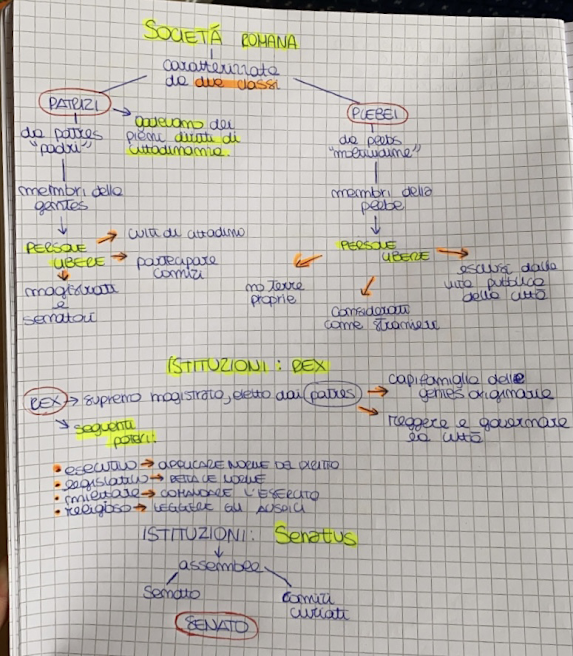 SOCIETÁ ROMANA
caratterizzata
da due classi
PATRIZI
godevano dei
pieni diritti di
cittadinanza.
da patres
"padri"
membri delle
gentes
PERSONE
LIBERE
culti di cittadino
partecipare
comizi
magistrati
e
senatori
PLEBEI
da plebs
"moltitudine"
membri della
plebe
PERSONE
LIBERE
no terre
proprie
considerati
come stranieri
esclusi dalla
vita pubblica
della città
ISTITUZIONI: REX
REX → supremo magistrato, eletto dai patres → capifamiglia delle
gentes originarie
→ reggere e governare
la città
seguenti
poteri:
• esecutivo → APPLICARE NORME DEL DIRITTO
• legislativo → DETTA LE NORME
• militare → COMANDARE L'ESERCITO
• religioso → LEGGERE GLI AUSPICI
ISTITUZIONI: Senatus
assemblee
Senato
Comizi
curiati
SENATO